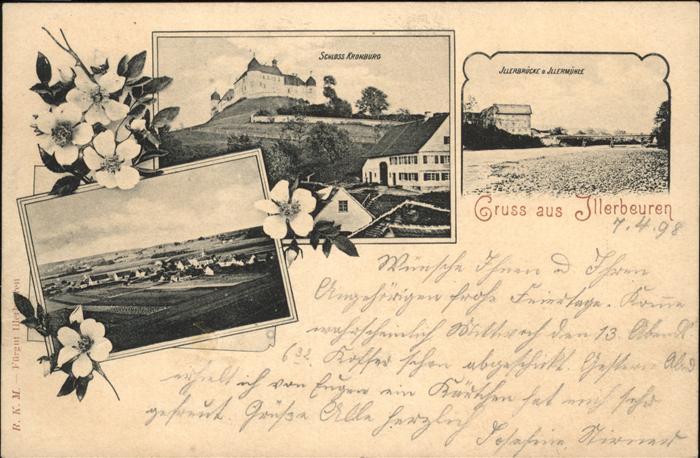 SCHLOSS KRONBURG
JLLERBRÜCKE U. JLLERMÜHLE
Gruss aus Jllerbeuren
7.4.98
Wünsche Ihnen u Ihren
Angehörigen frohe Feiertage. Komme
wahrscheinlich Mittwoch den 13. Abend
6 32. Koffer schon abgeschickt. Gestern Abd
erhielt ich von Eugen ein Kärtchen hat mich sehr
gefreut. Grüße Alle herzlich
Josefine Stirner
R. K. M. — Fürgut